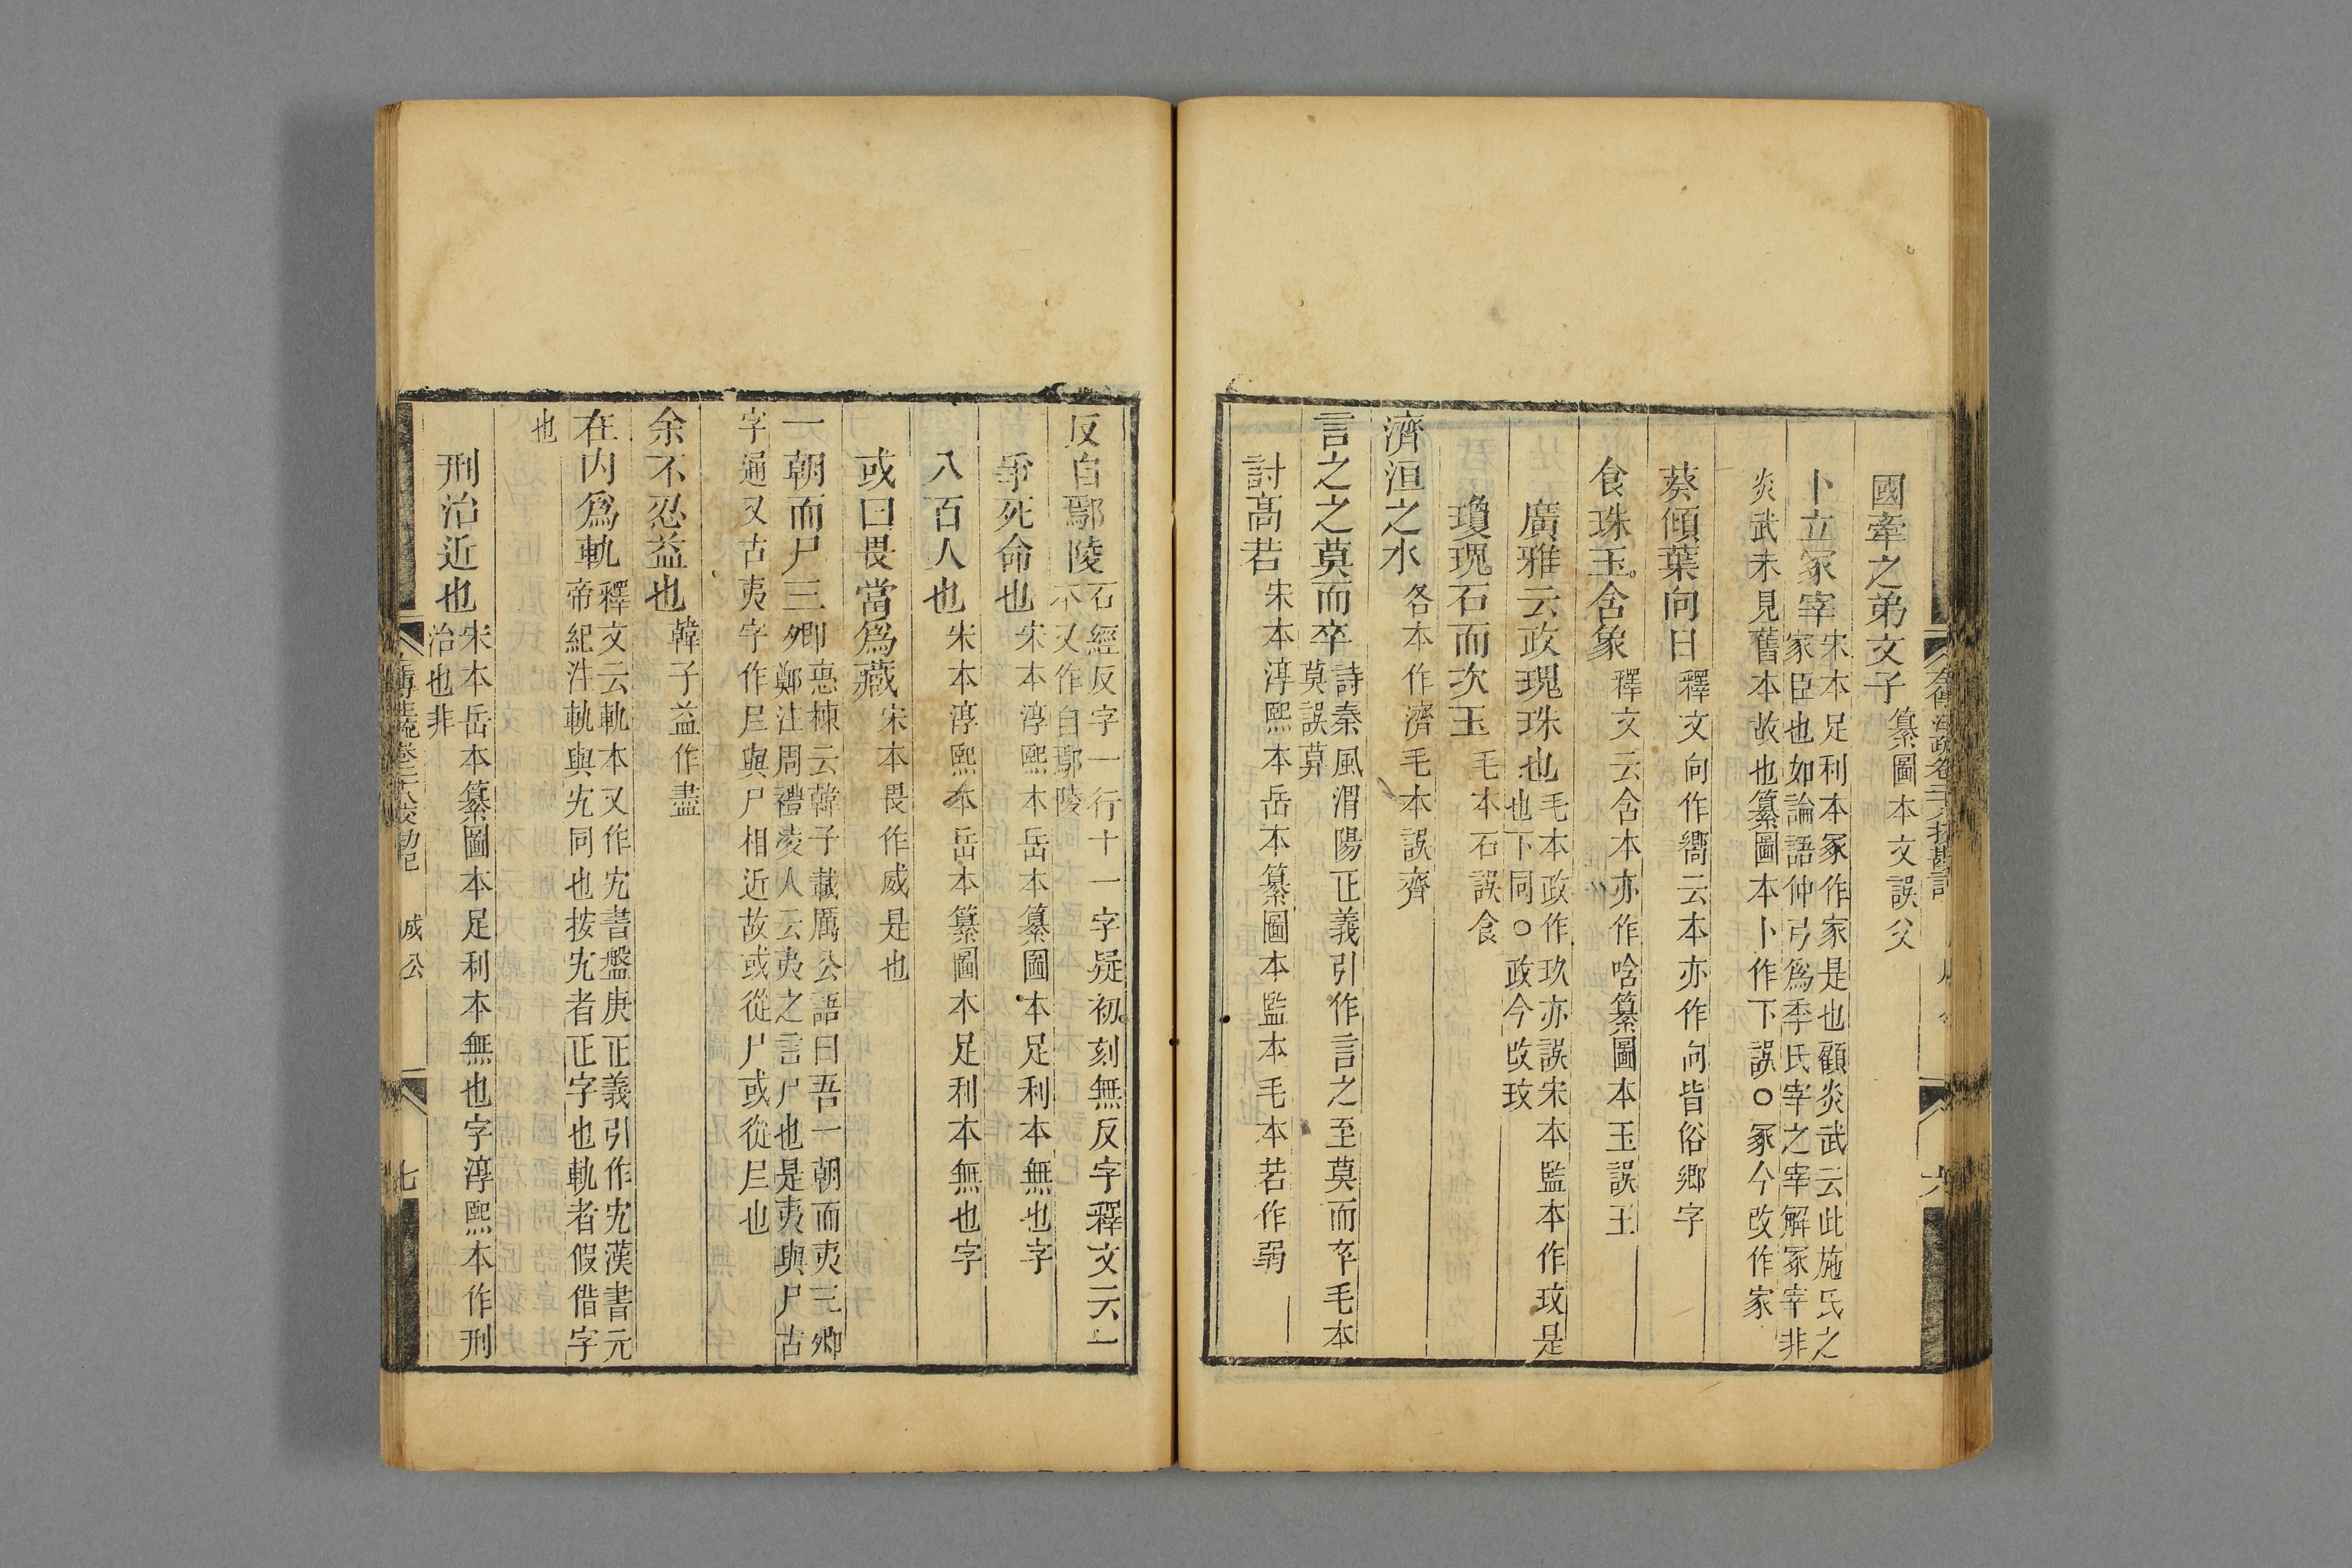 國牽之弟文子纂圖本文誤父
卜立冢宰宋本足利本冢作家是也顧炎武云此施氏之
家臣也如論語仲弓爲季氏宰之宰解冢宰非
炎武未見舊本故也纂圖本卜作下誤○冢今改作家
葵傾葉向日釋文向作嚮云本亦作向皆俗鄉字
食珠玉含象釋文云含本亦作唅纂圖本玉誤王
廣雅云政瑰珠也毛本政作玖亦誤宋本監本作玟是
也下同○政今改玟
瓊瑰石而次玉毛本石誤食
濟洹之水各本作濟毛本誤齊
言之之莫而卒詩秦風渭陽正義引作言之至莫而卒毛本
莫誤算
討高若宋本淳熙本岳本纂圖本監本毛本若作弱
反自鄢陵石經反字一行十一字疑初刻無反字釋文云一
本又作自鄢陵
爭死命也宋本淳熙本岳本纂圖本足利本無也字
八百人也宋本淳熙本岳本纂圖本足利本無也字
或曰畏當爲藏宋本畏作威是也
一朝而尸三卿惠棟云韓子載厲公語曰吾一朝而夷三卿
鄭注周禮凌人云夷之言尸也是夷與尸古
字通又古夷字作𡰥與尸相近故或從尸或從𡰥也
余不忍益也韓子益作盡
在內爲軌釋文云軌本又作宄書盤庚正義引作宄漢書元
帝紀注軌與宄同也按宄者正字也軌者假借字
也
刑治近也宋本岳本纂圖本足利本無也字淳熙本作刑
治也非
成公
七